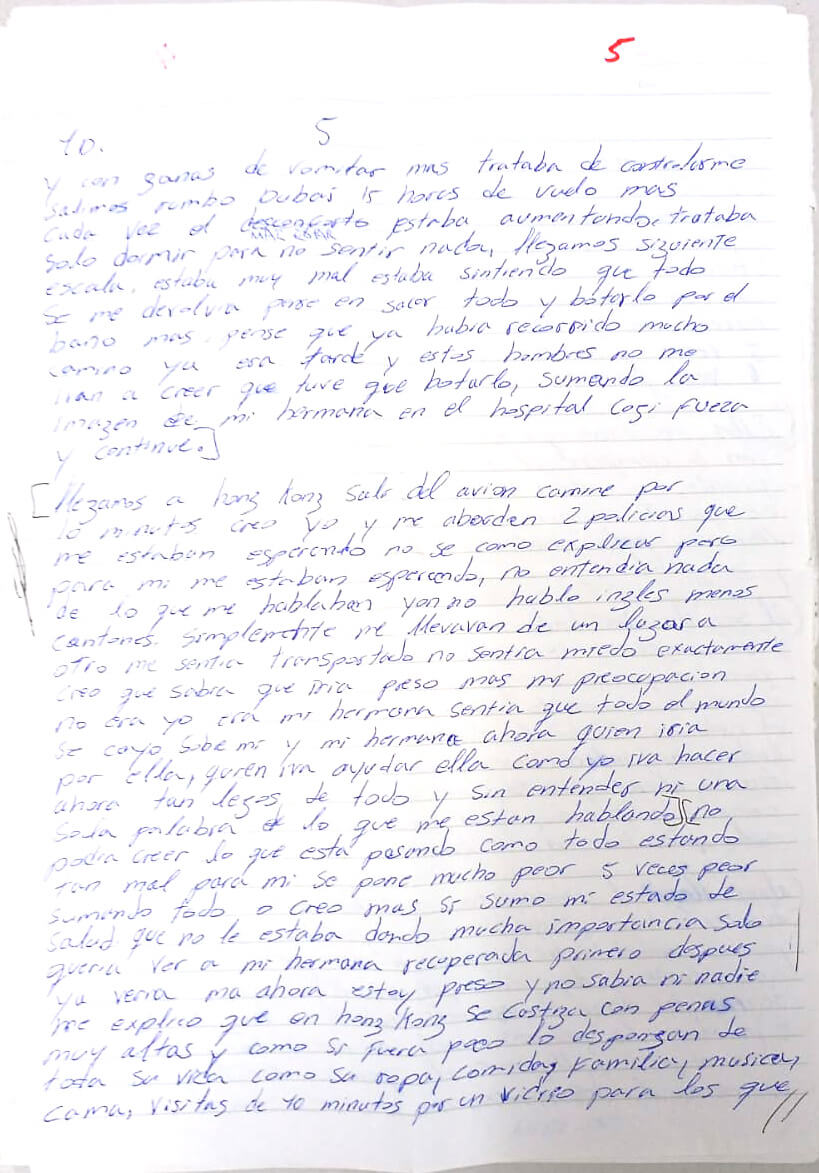 5
10.
5
y con ganas de vomitar mas trataba de controlarme
salimos rumbo Dubai 15 horas de vuelo mas
cada vez el desconforto estaba aumentando, trataba
solo dormir para no sentir nada, llegamos siguiente
escala, estaba muy mal estaba sintiendo que todo
se me devolvia pense en sacar todo y botarlo por el
baño mas pense que ya habia recorrido mucho
camino ya era tarde y estos hombres no me
irian a creer que tuve que botarlo, sumando la
imagen de mi hermana en el hospital cogi fuerza
y continue.]
[llegamos a hong kong sali del avion camine por
10 minutos creo yo y me aborden 2 policias que
me estaban esperando no se como explicar pero
para mi me estaban esperando, no entendia nada
de lo que me hablaban yo no hablo ingles menos
cantones. simplemente me llevavan de un lugar a
otro me sentia transportado no sentia miedo exactamente
creo que sabia que iria preso mas mi preocupacion
no era yo era mi hermana sentia que todo el mundo
se cayo sobe mi y mi hermana ahora quien iria
por ella, quien iva ayudar ella como yo iva hacer
ahora tan legos de todo y sin entender ni una
sola palabra de lo que me estan hablando][no
podia creer lo que esta pasando como todo estando
tan mal para mi se pone mucho peor 5 veces peor
sumando todo o creo mas si sumo mi estado de
salud que no le estaba dando mucha importancia solo
queria ver a mi hermana recuperada primero despues
ya veria ma ahora estoy preso y no sabia ni nadie
me explico que en hong kong se castiga con penas
muy altas y como si fuera poco lo despongan de
tota su vida como su ropa, comiday familia, musica,
cama, visitas de 10 minutos por un vidrio para los que